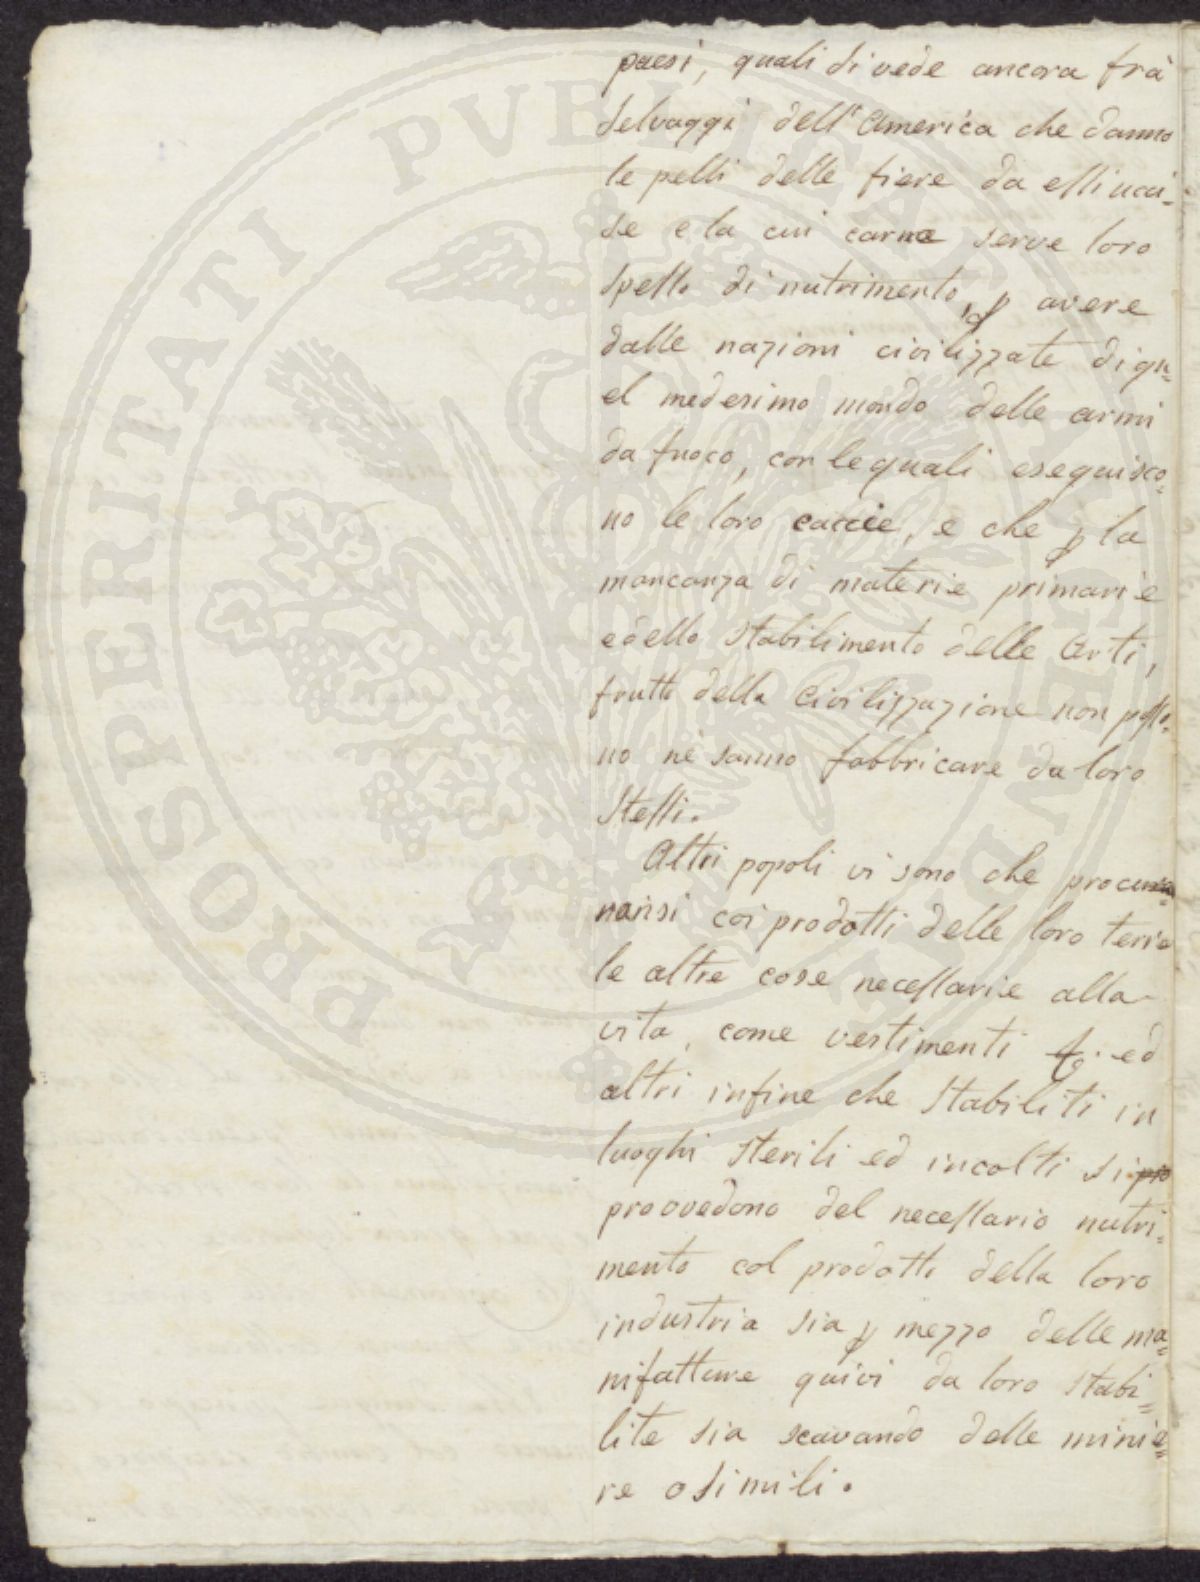 paesi, quali si vede ancora frà
selvaggi dell'America che danno
le pelli delle fiere da essi ucci=
se e la cui carne serve loro
spesso di nutrimento, p avere
dalle nazioni civilizzate di qu=
el medesimo mondo delle armi
da fuoco, con le quali eseguisco=
no le loro caccie, e che p la
mancanza di materie primarie
e dello stabilimento delle Arti,
frutto della Civilizzazione non posso=
no nè sanno fabbricare da loro
stessi.
Altri popoli vi sono che procu
ransi coi prodotti delle loro terre
le altre cose necessarie alla
vita, come vestimenti &c. ed
altri infine che stabiliti in
luoghi sterili ed incolti si pro
provvedono del necessario nutri=
mento col prodotto della loro
industria sia p mezzo delle ma=
nifatture quivi da loro stabi=
lite sia scavando delle minie=
re o simili.
PROSPERITATI PVBLICAE AVGENDAE